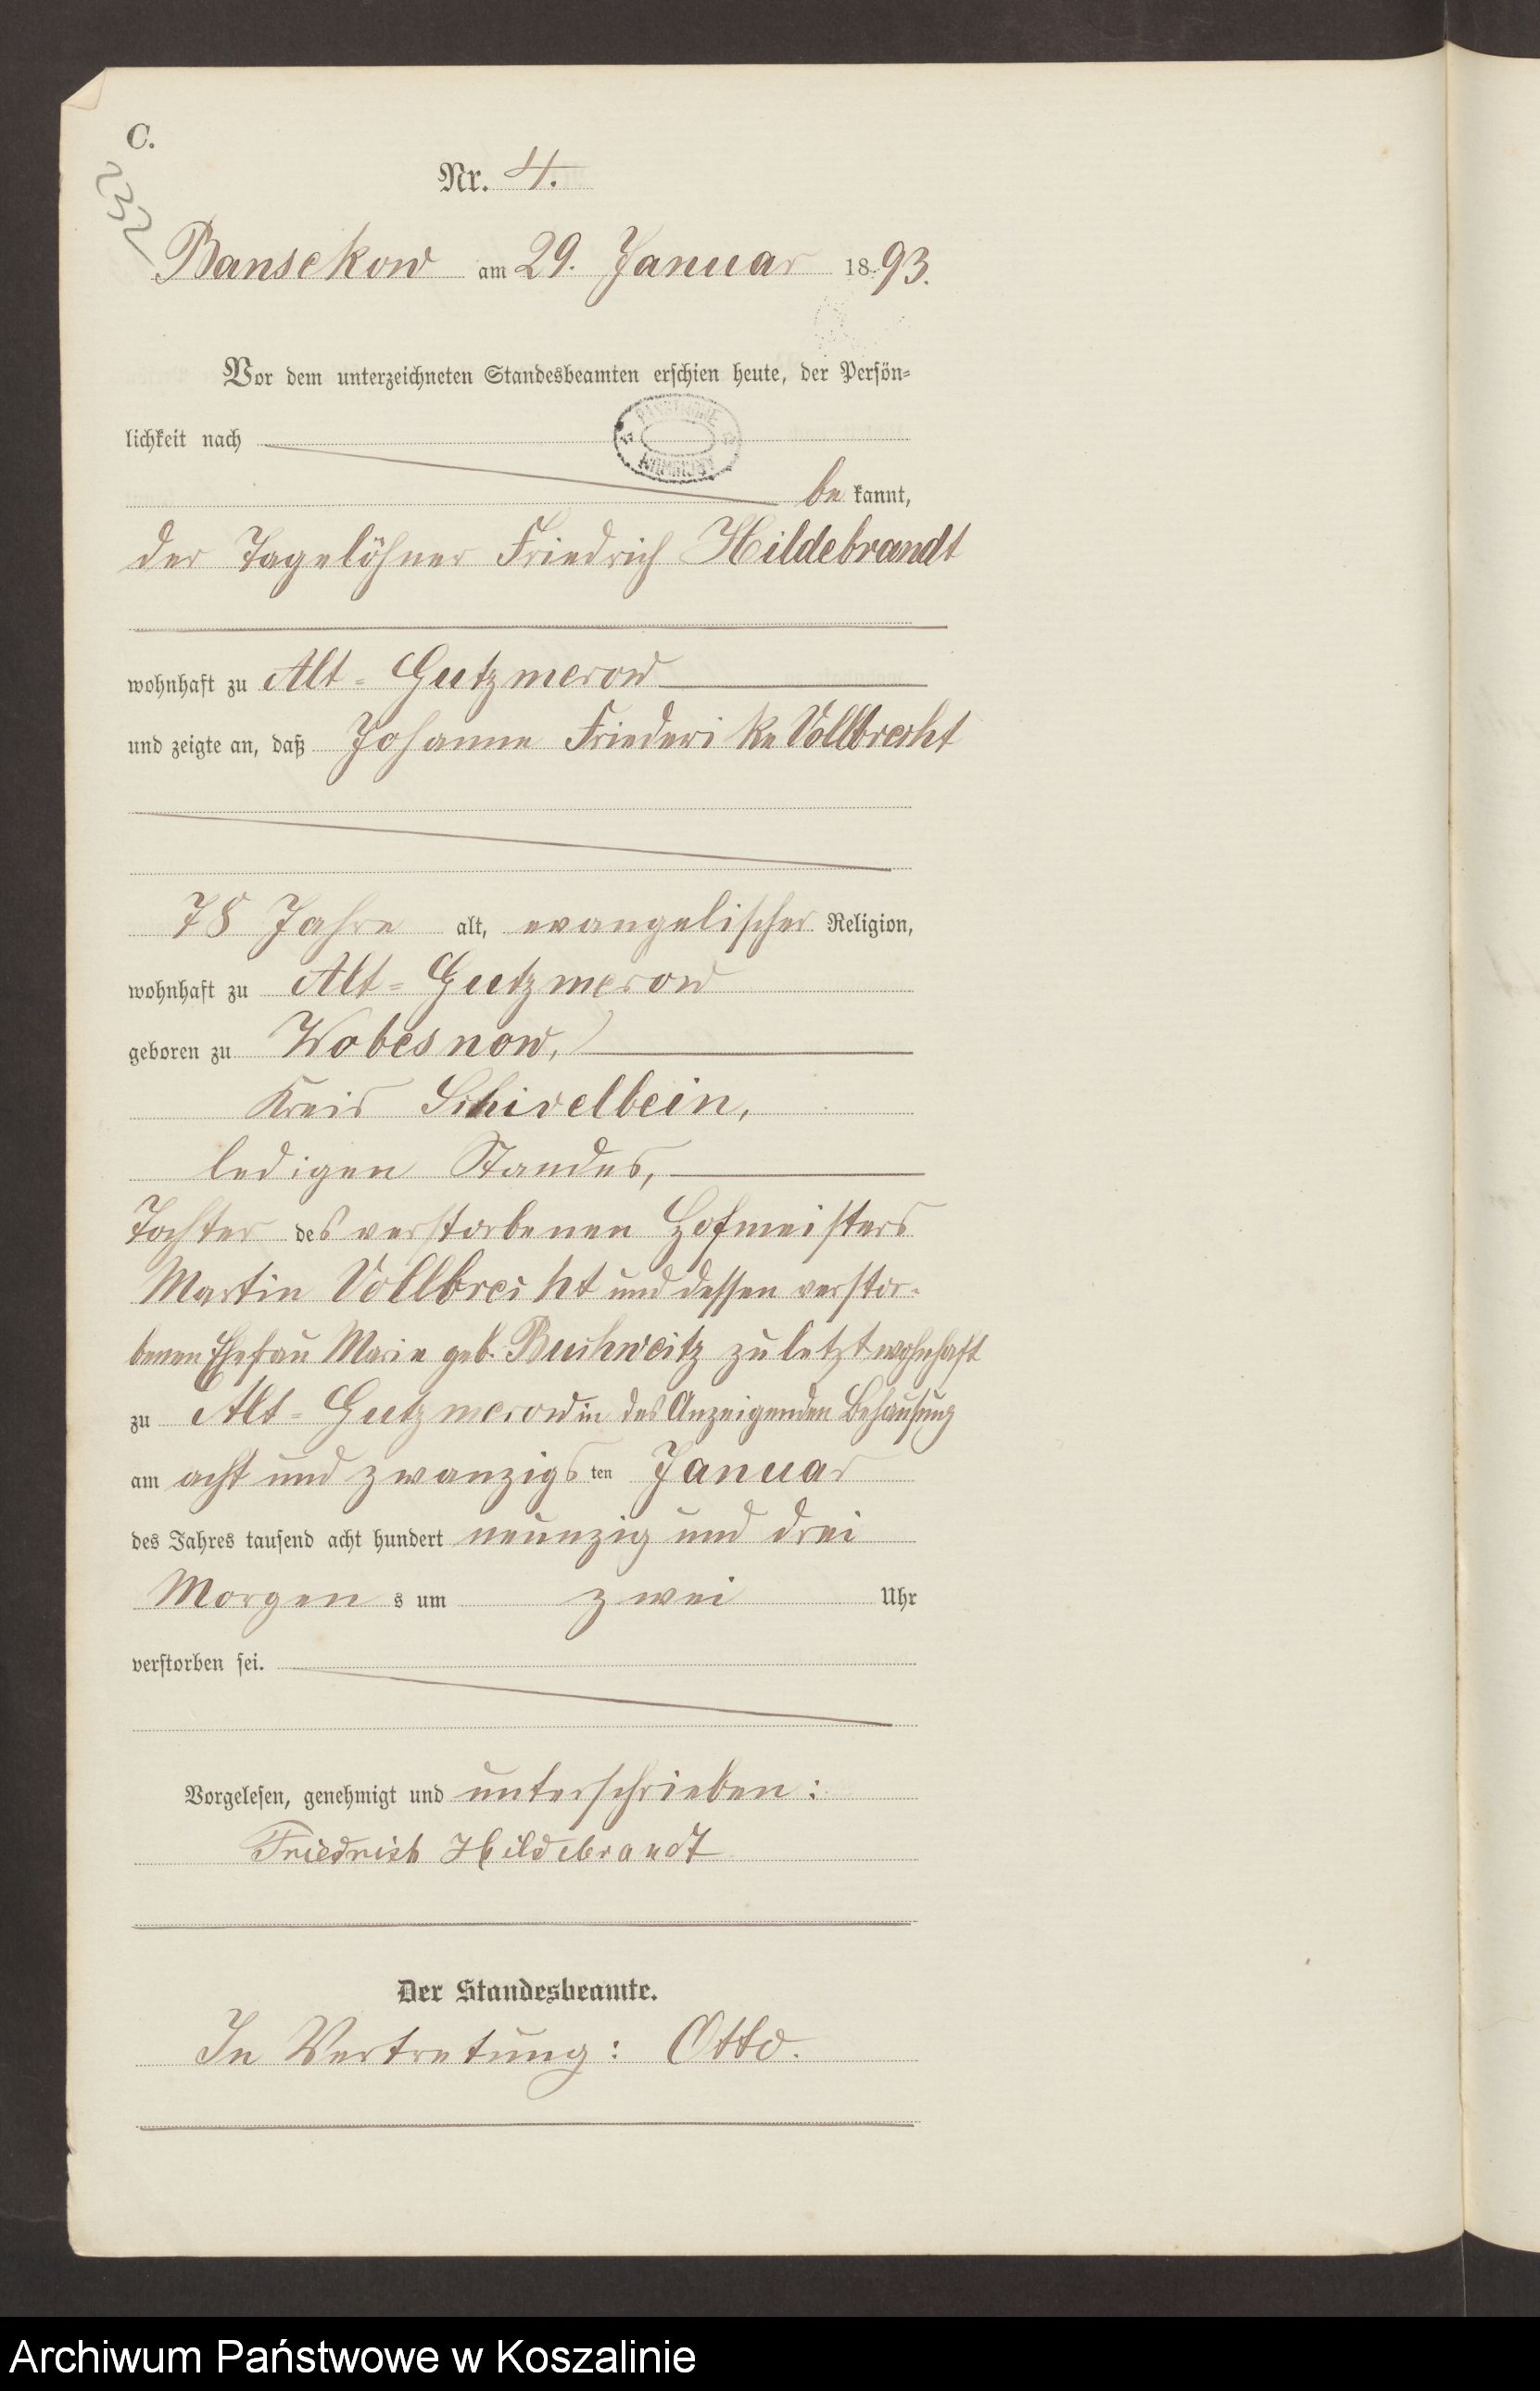 C.
232
Nr. 4.
Bansekow am 29. Januar 1893.
Vor dem unterzeichneten Standesbeamten erschien heute, der Persön-
lichkeit nach
be kannt,
der Tagelöhner Friedrich Hildebrandt
wohnhaft zu Alt-Gutzmerow
und zeigte an, daß Johanne Friederike Vollbrecht
78 Jahre alt, evangelischer Religion,
wohnhaft zu Alt-Gutzmerow
geboren zu Wobesnow,
Kreis Schivelbein,
ledigen Standes,
Tochter des verstorbenen Hofmeisters
Martin Vollbrecht und dessen verstor-
benen Ehefrau Marie geb. Buchweitz zuletzt wohnhaft
zu Alt-Gutzmerow in des Anzeigenden Behausung
am acht und zwanzigsten Januar
des Jahres tausend acht hundert neunzig und drei
Morgens um zwei Uhr
verstorben sei.
Vorgelesen, genehmigt und unterschrieben:
Friedrich Hildebrandt
Der Standesbeamte.
In Vertretung: Otto.
Archiwum Państwowe w Koszalinie